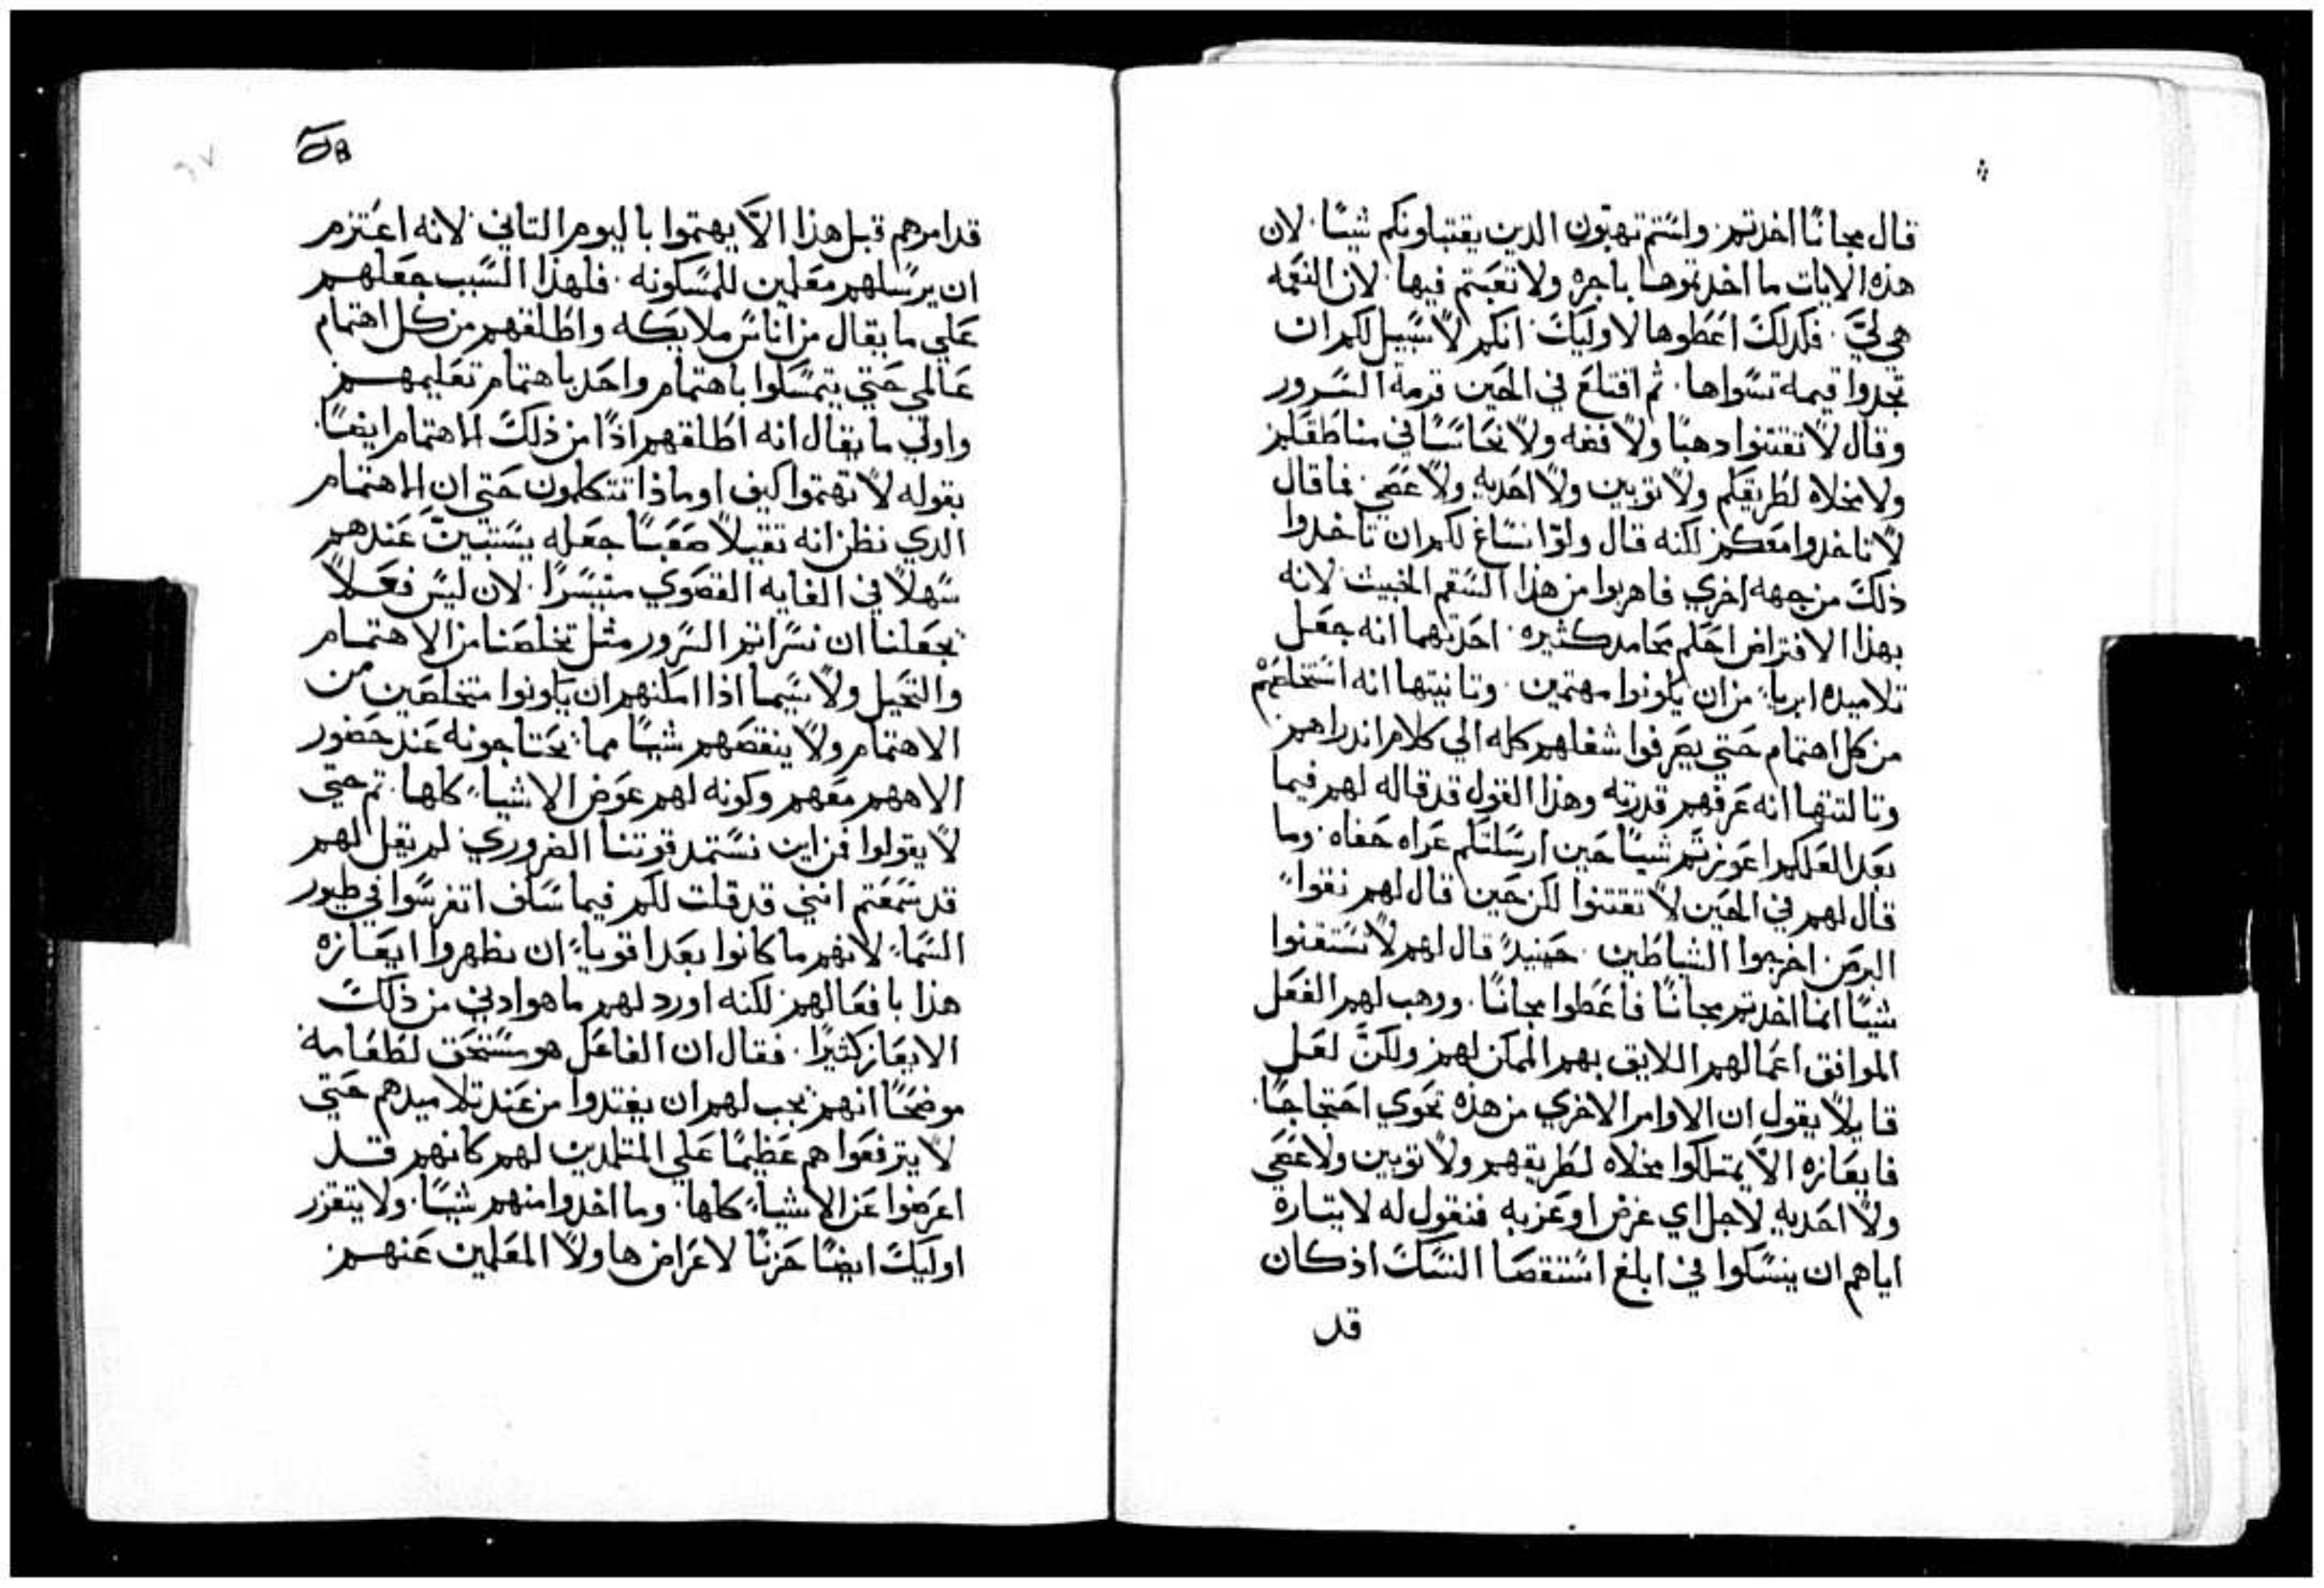 قال مجانًا اخدتم. ولستم تهبون الدين يقتبلونكم شيئًا. لان
هذه الايات ما اخدتموها باجره ولا تعبتم فيها. لان النعمه
هي ليَّ. فكدلك اعطوها لاوليك. انكم لا سبيل لكم ان
تجدوا قيمه تسواها. ثم اقتلع في الحين قرمة السرور
وقال لا تقتنوا دهبًا ولا فضه ولا نحاسًا في مناطقكم
ولا مخلاه لطريقكم ولا توبين ولا احديه ولا عصي. فما قال
لا تاخدوا معكم لكنه قال ولو انساغ لكم ان تاخدوا
ذلك من جهه اخري فاهربوا من هذا السقم الخبيث لانه
بهذا الافتراض احكم محامد كثيره. احدتهما انه جعل
تلاميده ابريا من ان يكونوا مهتمين. وتانيتها انه استخلصهم
من كل اهتمام حتي يصرفوا شغلهم كله الي كلام اندراهم
وتالتتها انه عرفهم قدرته وهذا القول قد قاله لهم فيما
بعد العلكم اعوزتم شيئًا حين ارسلتكم عراه حفاه. وما
قال لهم في الحين لا تقتنوا لكن حين قال لهم نقوا
البرص اخرجوا الشياطين. حينيد قال لهم لا تستقنوا
شيئًا انما اخدتم مجانًا فاعطوا مجانًا. ووهب لهم الفعل
الموافق اعمالهم اللايق بهم الممكن لهم ولكن لعل
قايلاً يقول ان الاوامر الاخري من هذه تحوي احتجاجًا.
فايعازه الاَّ يمتلكوا مخلاه لطريقهم ولا توبين ولا عصي
ولا احديه لاجل اي غرض اوعزبه فنقول له لايتاره
اياهم ان ينسكوا في ابلغ استقصا النسك اذ كان
قد
قد امرهم قبل هذا الاَّ يهتموا باليوم التاني لانه اعتزم
ان يرسلهم معلمين للمسكونه. فلهذا السبب جعلهم
علي ما يقال من اناس ملايكه واطلقهم من كل اهتمام
عالمي حتي يتمسكوا باهتمام واحد باهتمام تعليمهم
واولي ما يقال انه اطلقهم اذًا من ذلك الاهتمام ايضًا.
بقوله لا تهتموا كيف او ماذا تتكلمون حتي ان الاهتمام
الدي نظن انه تقيلاً صعبًا جعله يستبين عندهم
سهلاً في الغايه القصوي متيسرًا. لان ليس فعلاً
يجعلنا ان نسر اتم السرور مثل تخلصنا من الاهتمام
والتخيل ولا سيما اذا امكنهم ان يكونوا متخلصين من
الاهتمام ولا ينقصهم شيئًا مما يحتاجونه عند حضور
الاههم معهم وكونه لهم عوض الاشيا كلها. تم حتي
لا يقولوا فمن اين نستمد قوتنا الضروري لم يقل لهم
قد سمعتم انني قد قلت لكم فيما سلف اتفرسوا في طيور
السما لانهم ما كانوا بعد اقويا ان يظهروا ايعازه
هذا بافعالهم لكنه اورد لهم ما هو ادني من ذلك
الايعاز كثيرًا. فقال ان الفاعل هو مستحق لطعامه
موضحًا انهم يجب لهم ان يغتدوا من عند تلاميدهم حتي
لا يترفعوا هم عظيمًا علي المتلمدين لهم كانهم قد
اعرضوا عن الاشيا كلها. وما اخدوا منهم شيئًا. ولا يتقزر
اوليك ايضًا حزنًا لاعراض هاولا المعلمين عنهم